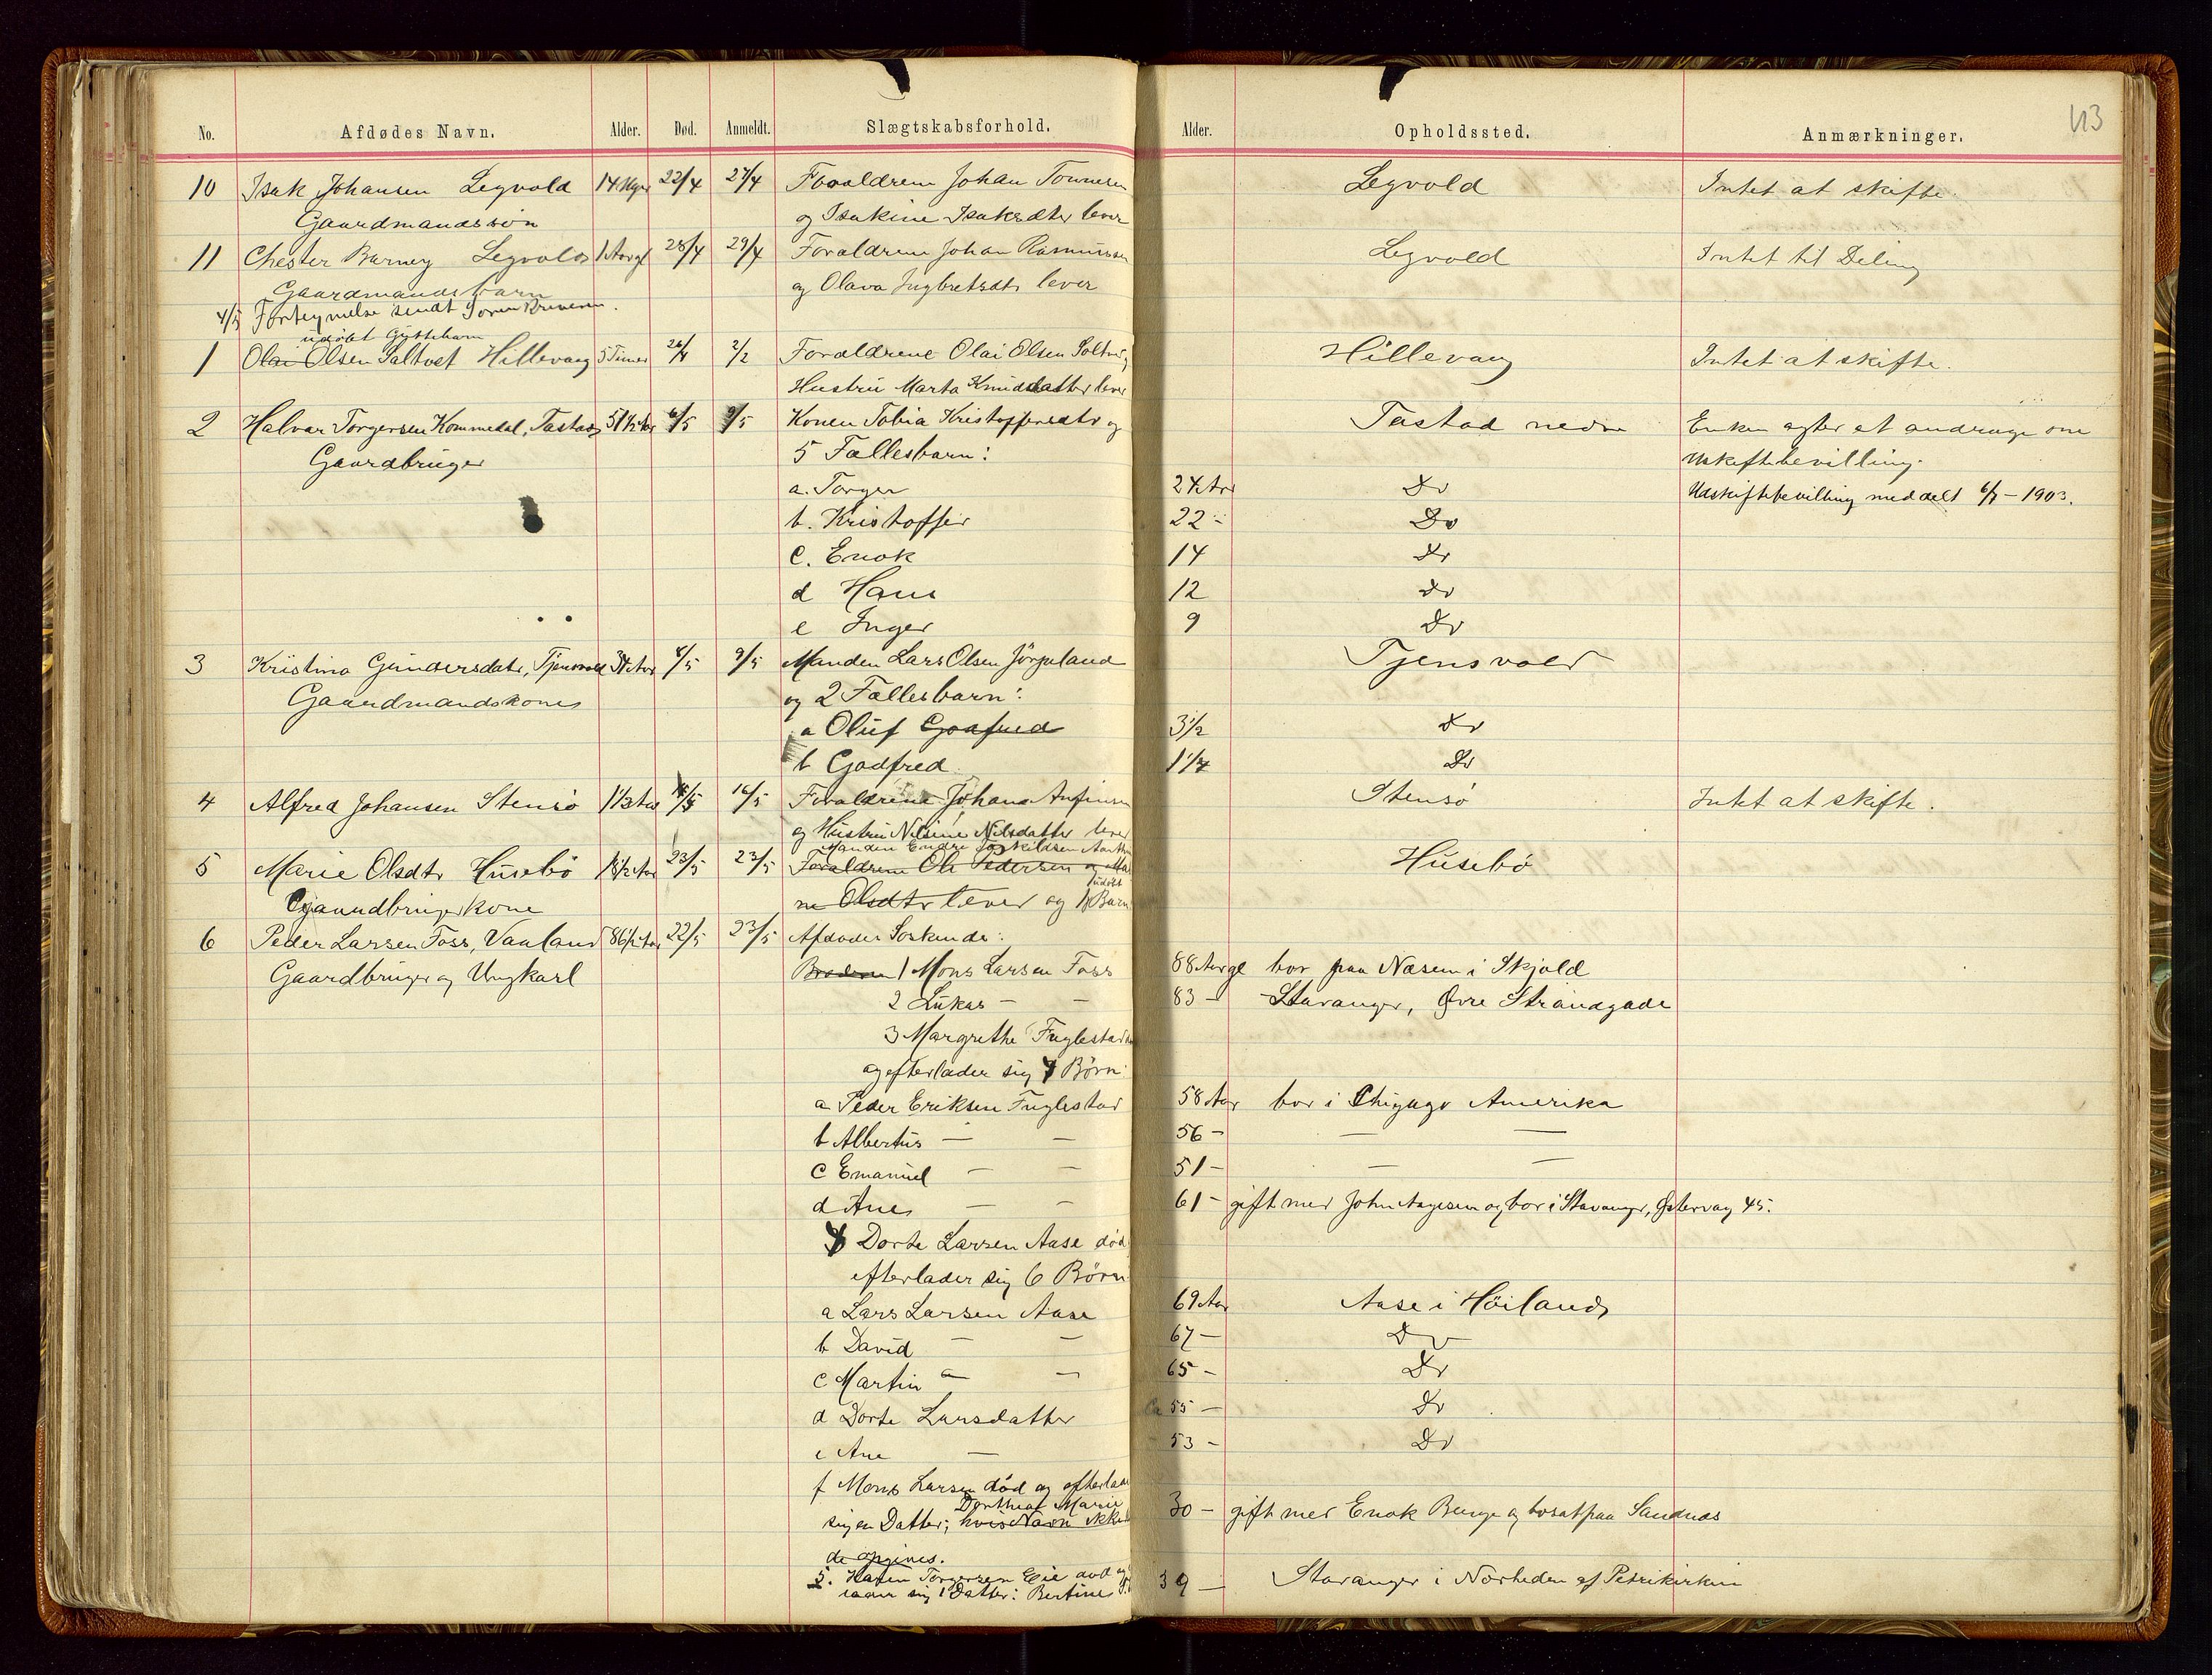 113
No. Afdødes Navn. Alder. Død. Anmeldt. Slægtskabsforhold. Alder. Opholdssted. Anmærkninger.
10 Isak Johansen Legvold 14 22/4 27/4 Forældrene Johan Tonnesen Legvold Intet at skifte.
Gaardmandssøn og Isakine Isaksdtr lever
11 Chester Barney Legvold 1 Aar gl 28/4 29/4 Forældrene Johan Rasmussen Legvold Intet til Deling
Gaardmandsbarn og Olava Ingbretsdtr lever
4/5 Fortegnelse sendt Soren
udøbt Gyttebarn
1 Olai Olsen Saltvet Hillevaag 5 Timer 26/4 2/2 Forældrene Olai Olsen Hillevaag Intet at skifte.
Hustru Marta Knudsdatter lever
2 Halvar Torgersen Kommedal, Tastad 51 1/2 Aar 6/5 9/5 Konen Tobia Kristoffersdtr og Tastad nedre Enken agter at andrage om
Gaardbruger 5 Fællesbarn: Uskiftebevilling.
a. Torger 24 Aar Do Udskiftebevilling meddelt 6/7 - 1903.
b. Kristoffer 22 - Do
c. Enok 14 Do
d Hans 12 Do
e Inger 9 Do
3 Kristina Gundersdatr, Tjensvold 34 Aar 8/5 9/5 Manden Lars Olsen Jörpeland Tjensvold
Gaardmandskone og 2 Fællesbarn:
a Oluf Godfred 3 1/2 Do
b Godfred 1 1/4 Do
4 Alfred Johansen Stensø 1 1/3 Aar 16/5 Forældrene Johan Anfinsen Stensø Intet at skifte.
og Hustru Nilsine Nilsdatter lever
Manden Endre
5 Marie Olsdtr Husebö 23/5 23/5 Forældrene Ole Pedersen og Ma Husebö
udøbt
Gaardbrugerkone ne Olsdtr lever og 1 Barn
6 Peder Larsen Foss, Vauland 86 1/2 Aar 22/5 23/5 Afdødes Søskende:
Gaardbruger og Ungkarl Brødrene 1 Mons Larsen Foss 88 Aar gl bor paa Næsem i Skjold
2 Lukas - - 83 - Stavanger, Øvre Strandgade
3 Margrethe Fuglestad
og efterlader sig 4 Børn:
a Peder Eriksen Fuglestad 58 Aar bor i Chigago Amerika
b Albertus - - 56 - - -
c Emanuel - - 51 - - -
d Ane - - 61 - gift med John Aagesen og bor i Stavanger, Østervag 45.
4 Dorte Larsen Aase død
efterlader sig 6 Børn
a Lars Larsen Aase 69 Aar Aase i Höiland
b David - - 67 - Do
c Martin - - 65 - Do
d Dorte Larsdatter 55 - Do
e Ane - 53 - Do
f Mons Larsen død og efterlader
Dorthea Marie
sig en Datter; hvis Navn ikke 30 - gift med Enok Berge og bosat paa Sandnæs
de opgives.
5. Karen Torgersen Eie død og
lader sig 1 Datter: Bertine 39 - Stavanger i Nærheden af Petrikirken